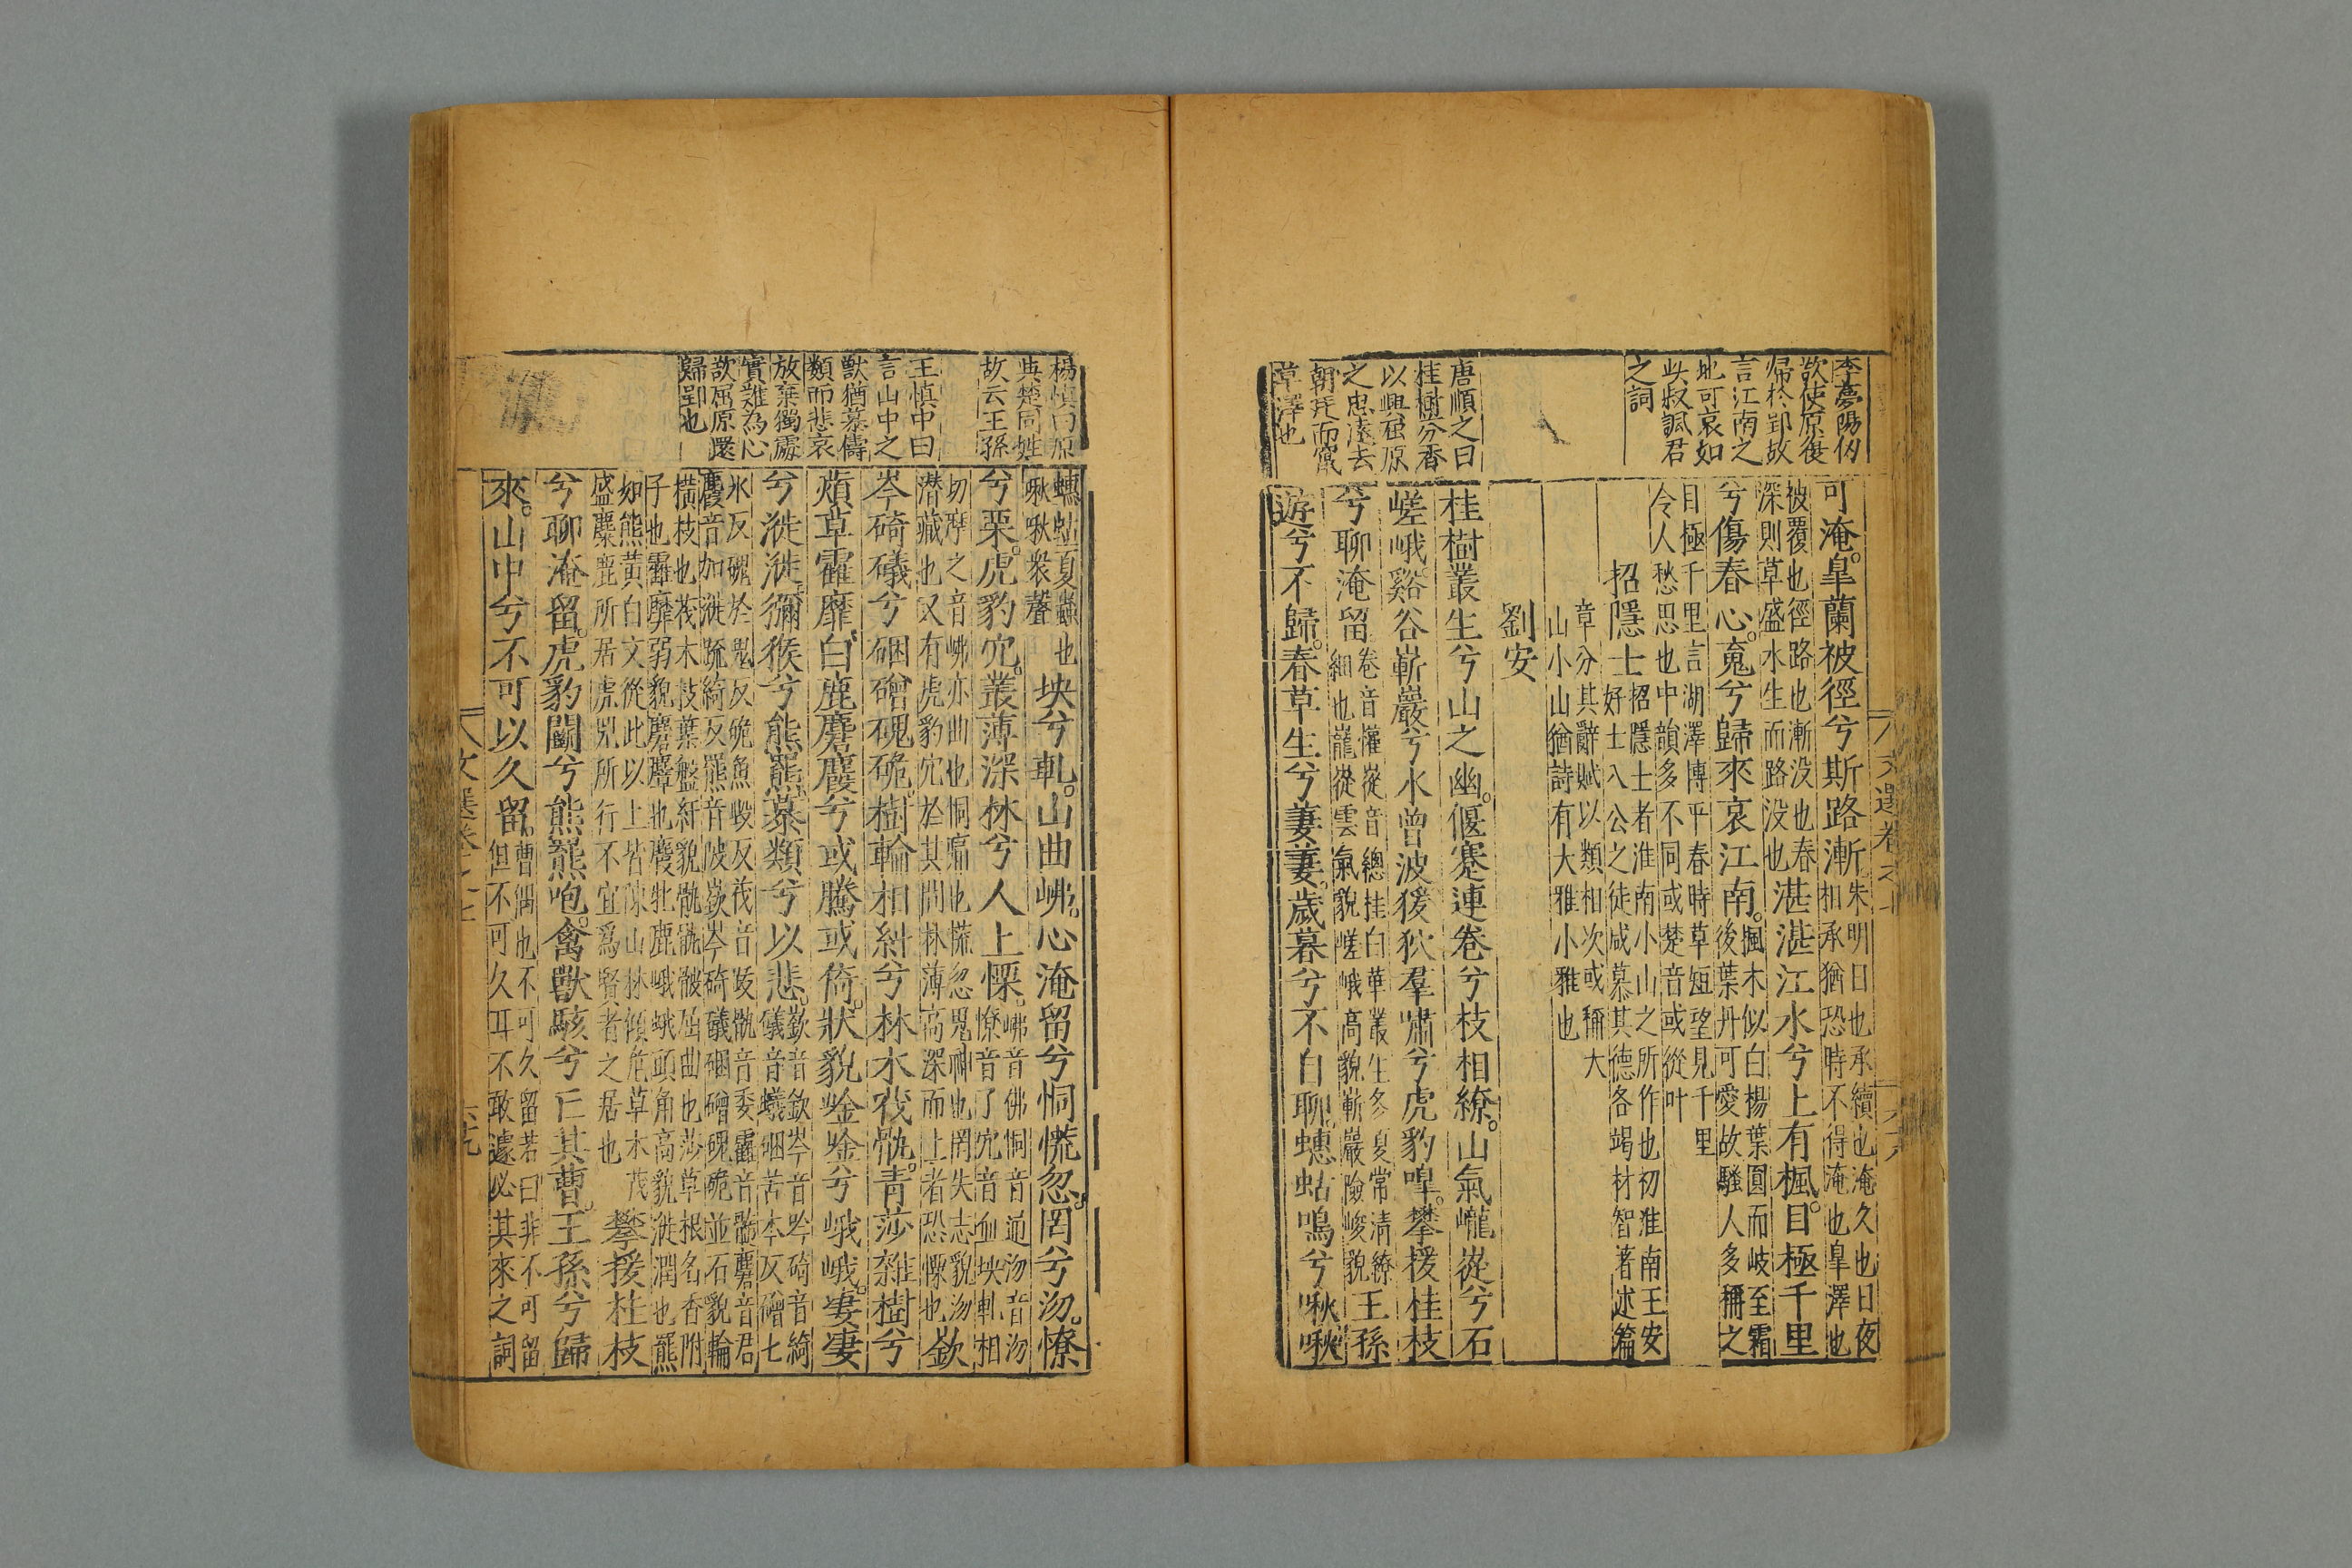 李夢陽伤
欲使原復
帰於郢故
言江南之
地可哀如
此叔諷君
之詞
唐順之曰
桂樹芬香
以興屈原
之忠遠去
朝廷而竄
草澤也
可淹。皐蘭被徑兮斯路漸。朱明日也承續也淹久也日夜
相承猶恐時不得淹也皐澤也
被覆也徑路也漸没也春
深則草盛水生而路没也湛湛江水兮上有楓。目極千里
兮傷春心。䰟兮歸來哀江南。楓木似白楊葉圓而岐至霜
後葉丹可愛故騷人多稱之
目極千里言湖澤博平春時草短望見千里
令人愁思也中韻多不同或楚音或從叶
招隱士招隱士者淮南小山之所作也初淮南王安
好士八公之徒咸慕其德各竭材智著述篇
章分其辭賦以類相次或稱大
山小山猶詩有大雅小雅也
劉安
桂樹叢生兮山之幽。偃蹇連卷兮枝相繚。山氣巃嵸兮石
嵯峨谿谷嶄巖兮水曾波猨狖羣嘯兮虎豹嘷。攀援桂枝
兮聊淹留卷音懽嵸音總桂白華叢生冬夏常清繚
細也巃嵸雲氣貌嵯峨高貌嶄巖險峻貌王孫
遊兮不歸。春草生兮萋萋。歲暮兮不自聊蟪蛄鳴兮啾啾
楊慎曰原
與楚同姓
故云王孫
王慎中曰
言山中之
獸猶慕儔
類而悲哀
放棄獨處
實難為心
欲屈原還
歸郢也
蟪蛄夏蟲也
啾啾衆聲坱兮軋。山曲岪。心淹留兮恫慌忽。罔兮沕。憭
兮栗。虎豹穴。叢薄深林兮人上慄。岪音佛恫音通沕音沕
憭音了穴音血坱軋相
切摩之音岪亦曲也恫痛也慌忽鬼神也罔失志貌沕
潜藏也又有虎豹穴於其間林薄高深而上者恐慄也嶔
岑碕礒兮硱磳磈硊。樹輪相糾兮林木茷骫。青莎雜樹兮
薠草靃靡。白鹿麏麚兮或騰或倚。狀貌崯崯兮峨峨。凄凄
兮漇漇獼猴兮熊羆。慕類兮以悲。嶔音欽岑音吟碕音綺
礒音蟻硱苦本反磳七
氷反磈於鬼反硊魚毁反茷音跋骫音委靃音髓麏音君
麚音加漇疏綺反羆音陂嶔岑碕礒硱磳磈硊並石貌輪
橫枝也茷木枝葉盤紆貌骫骫骳屈曲也莎草根名香附
子也靃靡弱貌麏麞也麚牡鹿峨峨頭角高貌漇潤也羆
如熊黄白文從此以上皆陳山林傾危草木茂
盛麋鹿所居虎兕所行不宜爲賢者之居也攀援桂枝
兮聊淹留。虎豹鬭兮熊羆咆。禽獸駭兮亡其曹。王孫兮歸
來。山中兮不可以久留。曹偶也不可久留若曰非不可留
但不可久耳不敢遽必其來之詞